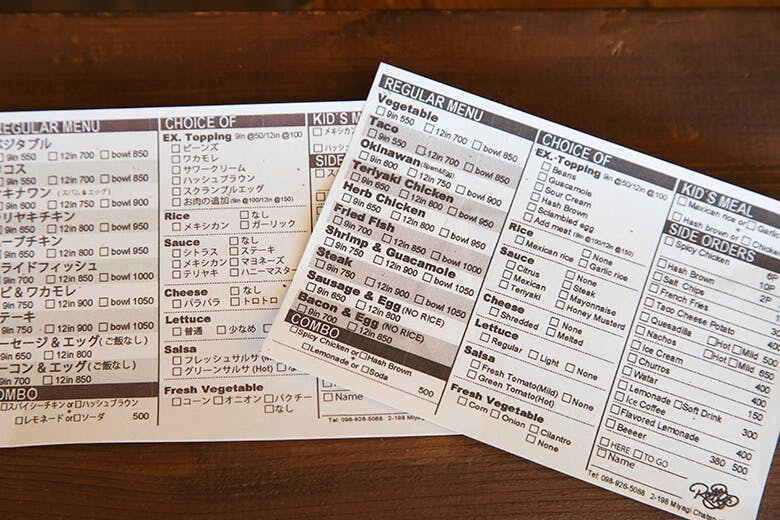 REGULAR MENU
ベジタブル
9in 550 □12in 700 □bowl 850
タコス
9in 550 □12in 700 □bowl 850
オキナワン (スパム&エッグ)
9in 600 □12in 750 □bowl 900
テリヤキチキン
9in 650 □12in 800 □bowl 950
ハーブチキン
9in 650 □12in 800 □bowl 950
フライドフィッシュ
9in 700 □12in 850 □bowl 1000
エビ&ワカモレ
9in 750 □12in 900 □bowl 1050
ステーキ
9in 750 □12in 900 □bowl 1050
ソーセージ&エッグ(ご飯なし)
9in 650 □12in 800
ベーコン&エッグ(ご飯なし)
9in 650 □12in 800
COMBO
□スパイシーチキン or □ハッシュブラウン
□レモネード or □ソーダ 500
CHOICE OF
EX. Topping 9in @50/12in @100
□ビーンズ
□ワカモレ
□サワークリーム
□ハッシュブラウン
□スクランブルエッグ
□お肉の追加 (9in @100/12in @150)
Rice □なし
□メキシカン □ガーリック
Sauce □なし
□シトラス □ステーキ
□メキシカン □マヨネーズ
□テリヤキ □ハニーマスター
Cheese □なし
□パラパラ □トロトロ
Lettuce
□普通 □少なめ
Salsa
□フレッシュサルサ
□グリーンサルサ (Hot)
Fresh Vegetable
□コーン □オニオン □パクチー
□なし
KID'S M
□メキシカン
□ハッシュ
SIDE
□Name
Tel: 098-926-5068 2-198 Miya
REGULAR MENU
Vegetable
□9in 550 □12in 700 □bowl 850
Taco
□9in 550 □12in 700 □bowl 850
Okinawan (Spam&Egg)
□9in 600 □12in 750 □bowl 900
Teriyaki Chicken
□9in 650 □12in 800 □bowl 950
Herb Chicken
□9in 650 □12in 800 □bowl 950
Fried Fish
□9in 700 □12in 850 □bowl 1000
Shrimp & Guacamole
□9in 750 □12in 900 □bowl 1050
Steak
□9in 750 □12in 900 □bowl 1050
Sausage & Egg (NO RICE)
□9in 650 □12in 800
Bacon & Egg (NO RICE)
□9in 650 □12in 800
COMBO
□Spicy Chicken or □Hash Brown
□Lemonade or □Soda 500
CHOICE OF
EX. Topping 9in @50/12in @100
□Beans
□Guacamole
□Sour Cream
□Hash Brown
□Sclambled egg
□Add meat (9in @100/12in @150)
Rice □None
□Mexican rice □Garlic rice
Sauce □None
□Citrus □Steak
□Mexican □Mayonaise
□Teriyaki □Honey Musterd
Cheese □None
□Shredded □Melted
Lettuce
□Regular □Light □None
Salsa □None
□Fresh Tomato(Mild)
□Green Tomato(Hot)
Fresh Vegetable
□Corn □Onion □Cilantro
□None
KID'S MEAL
□Mexican rice or □Garlic
□Hash brown or □Chicken
SIDE ORDERS
□Spicy Chicken
□Hash Brown
□Salt Chips
□French Fries
□Taco Cheese Potato
□Quesadilla □Hot □Mild 500
□Nachos □Hot □Mild
□Ice Cream
□Churros
□Watar
□Lemonade □Soft Drink
□Ice Coffee
□Flavored Lemonade
□Beeeer 380 500
□HERE □TO GO
□Name
Tel: 098-926-5068 2-198 Miyagi Chatan